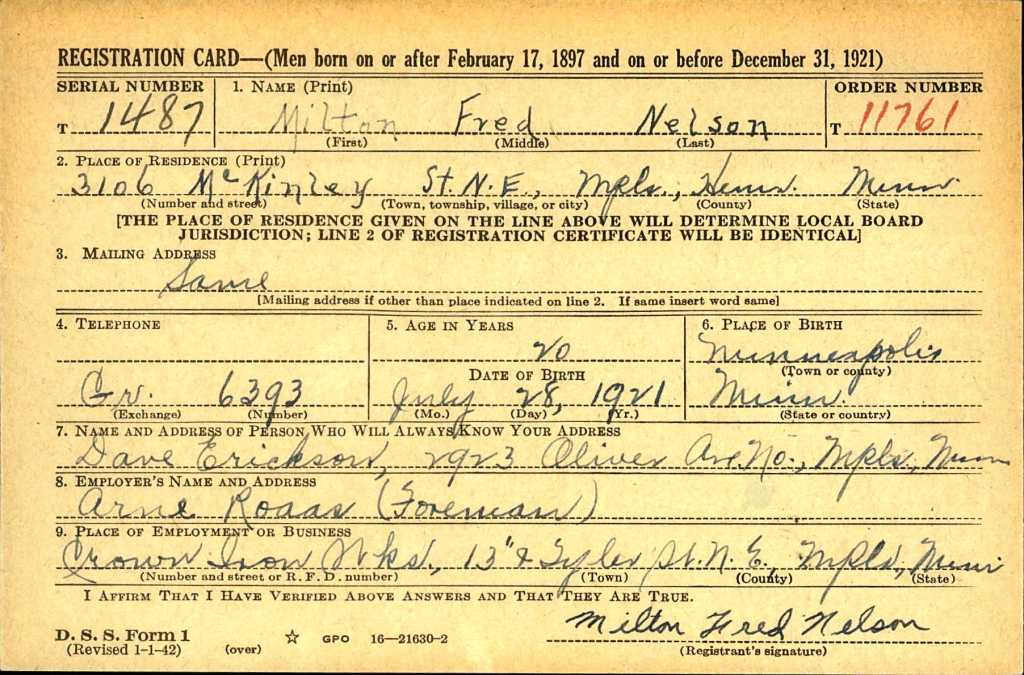 REGISTRATION CARD—(Men born on or after February 17, 1897 and on or before December 31, 1921)
SERIAL NUMBER 1. NAME (Print) ORDER NUMBER
T 1487 Milton Fred Nelson T 11761
(First) (Middle) (Last)
2. PLACE OF RESIDENCE (Print)
3106 McKinley St. N.E., Mpls., Henn. Minn.
(Number and street) (Town, township, village, or city) (County) (State)
[THE PLACE OF RESIDENCE GIVEN ON THE LINE ABOVE WILL DETERMINE LOCAL BOARD
JURISDICTION; LINE 2 OF REGISTRATION CERTIFICATE WILL BE IDENTICAL]
3. MAILING ADDRESS
Same
[Mailing address if other than place indicated on line 2. If same insert word same]
4. TELEPHONE 5. AGE IN YEARS 6. PLACE OF BIRTH
20 Minneapolis
DATE OF BIRTH (Town or county)
Gr. 6393 July 28, 1921 Minn.
(Exchange) (Number) (Mo.) (Day) (Yr.) (State or country)
7. NAME AND ADDRESS OF PERSON WHO WILL ALWAYS KNOW YOUR ADDRESS
Dave Erickson, 2923 Oliver Ave. No., Mpls., Minn
8. EMPLOYER'S NAME AND ADDRESS
Arne Roaas (Foreman)
9. PLACE OF EMPLOYMENT OR BUSINESS
Crown Iron Wks., 13" & Tyler St. N. E., Mpls., Minn
(Number and street or R. F. D. number) (Town) (County) (State)
I AFFIRM THAT I HAVE VERIFIED ABOVE ANSWERS AND THAT THEY ARE TRUE.
Milton Fred Nelson
D. S. S. Form 1 ☆ GPO 16—21630-2
(Revised 1-1-42) (over) (Registrant's signature)